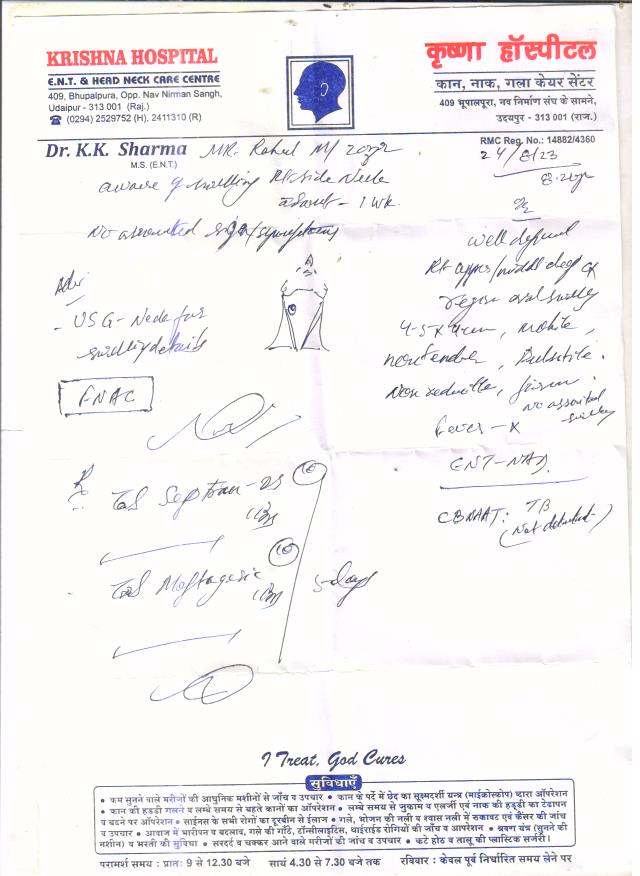 KRISHNA HOSPITAL
E.N.T. & HEAD NECK CARE CENTRE
409, Bhupalpura, Opp. Nav Nirman Sangh,
Udaipur - 313 001 (Raj.)
☎ (0294) 2529752 (H), 2411310 (R)
कृष्णा हॉस्पीटल
कान, नाक, गला केयर सेंटर
409 भूपालपुरा, नव निर्माण संघ के सामने,
उदयपुर - 313 001 (राज.)
RMC Reg. No.: 14882/4360
Dr. K.K. Sharma
M.S. (E.N.T.)
MR. Rahul M/20yr
24/8/23
aware of swelling Rt side Neck
about - 1 wk.
No associated sign/symptoms
Adv
- USG - Neck for
swelling details
FNAC
well defined
Rt upper/middle deep
region oval swelling
mobile,
nontender, Pulsatile.
Non reducible, firm.
No associated
swelling
Fever - x
ENT - NAD.
CBNAAT: TB
(Not detected)
Rx
Tab Septran - DS
10
Tab Meftagesic
10
5 days
I Treat, God Cures
सुविधाएँ
• कम सुनने वाले मरीजों की आधुनिक मशीनों से जाँच व उपचार • कान के पर्दे में छेद का सूक्ष्मदर्शी यन्त्र (माईक्रोस्कोप) द्वारा ऑपरेशन
• कान की हड्डी गलने व लम्बे समय से बहते कानों का ऑपरेशन • लम्बे समय से जुकाम व एलर्जी एवं नाक की हड्डी का टेढापन
व बढने पर ऑपरेशन • साईनस के सभी रोगों का दूरबीन से ईलाज • गले, भोजन की नली व श्वास नली में रूकावट एवं कैंसर की जांच
व उपचार • आवाज में भारीपन व बदलाव, गले की गाँठे, टॉन्सीलाइटिस, थाईराईड रोगियों की जाँच व आपरेशन • श्रवण यंत्र (सुनने की
मशीन) व भरती की सुविधा • सरदर्द व चक्कर आने वाले मरीजों की जाँच व उपचार • कटे होठ व तालू की प्लास्टिक सर्जरी।
परामर्श समय : प्रातः 9 से 12.30 बजे सायं 4.30 से 7.30 बजे तक रविवार : केवल पूर्व निर्धारित समय लेने पर